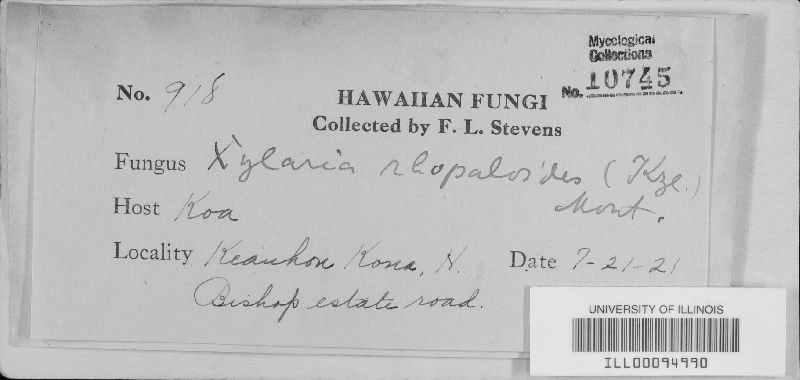 Mycological
Collections
No. 10745
No. 918
HAWAIIAN FUNGI
Collected by F. L. Stevens
Fungus Xylaria rhopaloides (Kze.)
Mont.
Host Koa
Locality Keauhou Kona, H. Date 7-21-21
Bishop estate road.
UNIVERSITY OF ILLINOIS
ILL00094990